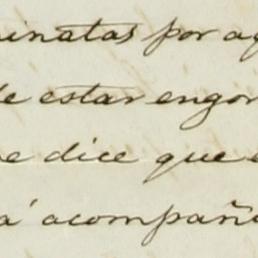 inatas por aq
de estar engor
e dice que
á acompañ